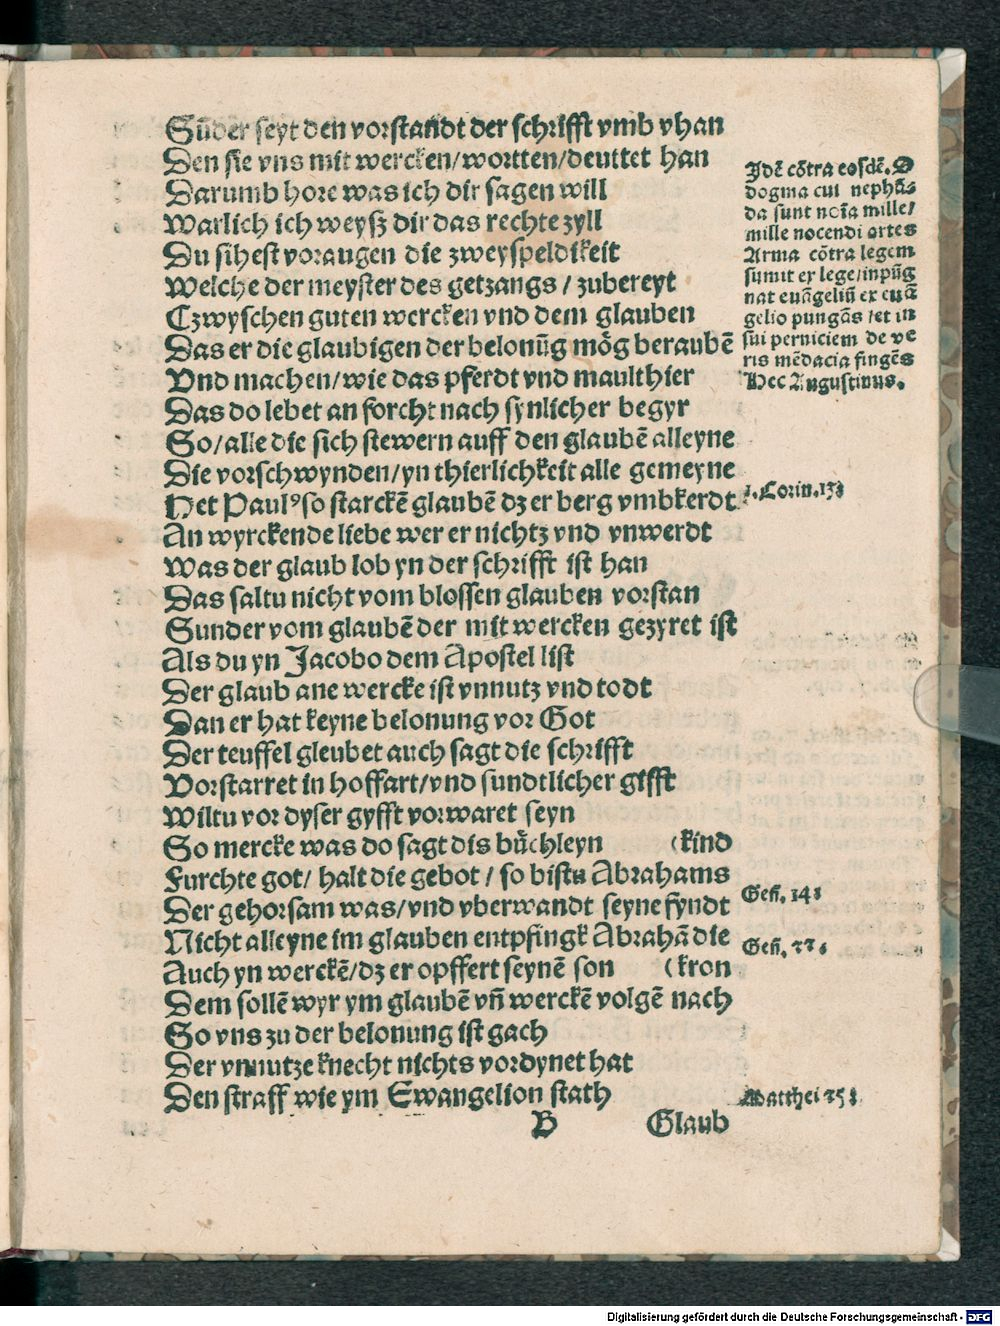 Sūder seyt den vorstandt der schrifft vmb vhan
Den sie vns mit wercken/wortten/deuttet han
Darumb hore was ich dir sagen will
Warlich ich weysz dir das rechte zyll
Du sihest voraugen die zweyspeldikeit
Welche der meyster des getzangs / zubereyt
Czwyschen guten wercken vnd dem glauben
Das er die glaubigen der belonūg mög beraubē
Vnd machen/wie das pferdt vnd maulthier
Das do lebet an forcht nach synlicher begyr
So/alle die sich stewern auff den glaubē alleyne
Die vorschwynden/yn thierlichkeit alle gemeyne
Het Paulꝰ so starckē glaubē dz er berg vmbkerdt
An wyrckende liebe wer er nichtz vnd vnwerdt
Was der glaub lob yn der schrifft ist han
Das saltu nicht vom blossen glauben vorstan
Sunder vom glaubē der mit wercken gezyret ist
Als du yn Jacobo dem Apostel list
Der glaub ane wercke ist vnnutz vnd todt
Dan er hat keyne belonung vor Got
Der teuffel gleubet auch sagt die schrifft
Vorstarret in hoffart/vnd sundtlicher gifft
Wiltu vor dyser gyfft vorwaret seyn
So mercke was do sagt dis bůchleyn (kind
Furchte got/ halt die gebot / so bistu Abrahams
Der gehorsam was/vnd vberwandt seyne fyndt
Nicht alleyne im glauben entpfingk Abrahā die
Auch yn werckē/dz er opffert seynē son (kron
Dem sollē wyr ym glaubē vn̄ werckē volgē nach
So vns zu der belonung ist gach
Der vnnutze knecht nichts vordynet hat
Den straff wie ym Ewangelion stath
B Glaub
Idē cōtra eosdē. O
dogma cui nephā-
da sunt noīa mille/
mille nocendi artes
Arma cōtra legem
sumit ex lege/inpūg
nat euāgeliū ex euā
gelio pungās /et in
sui perniciem de ve
ris mēdacia fingēs
Hec Augustinus.
1. Corin. 13.
Gen̄. 14.
Gen̄. 22.
Matthei 25.
Digitalisierung gefördert durch die Deutsche Forschungsgemeinschaft - DFG